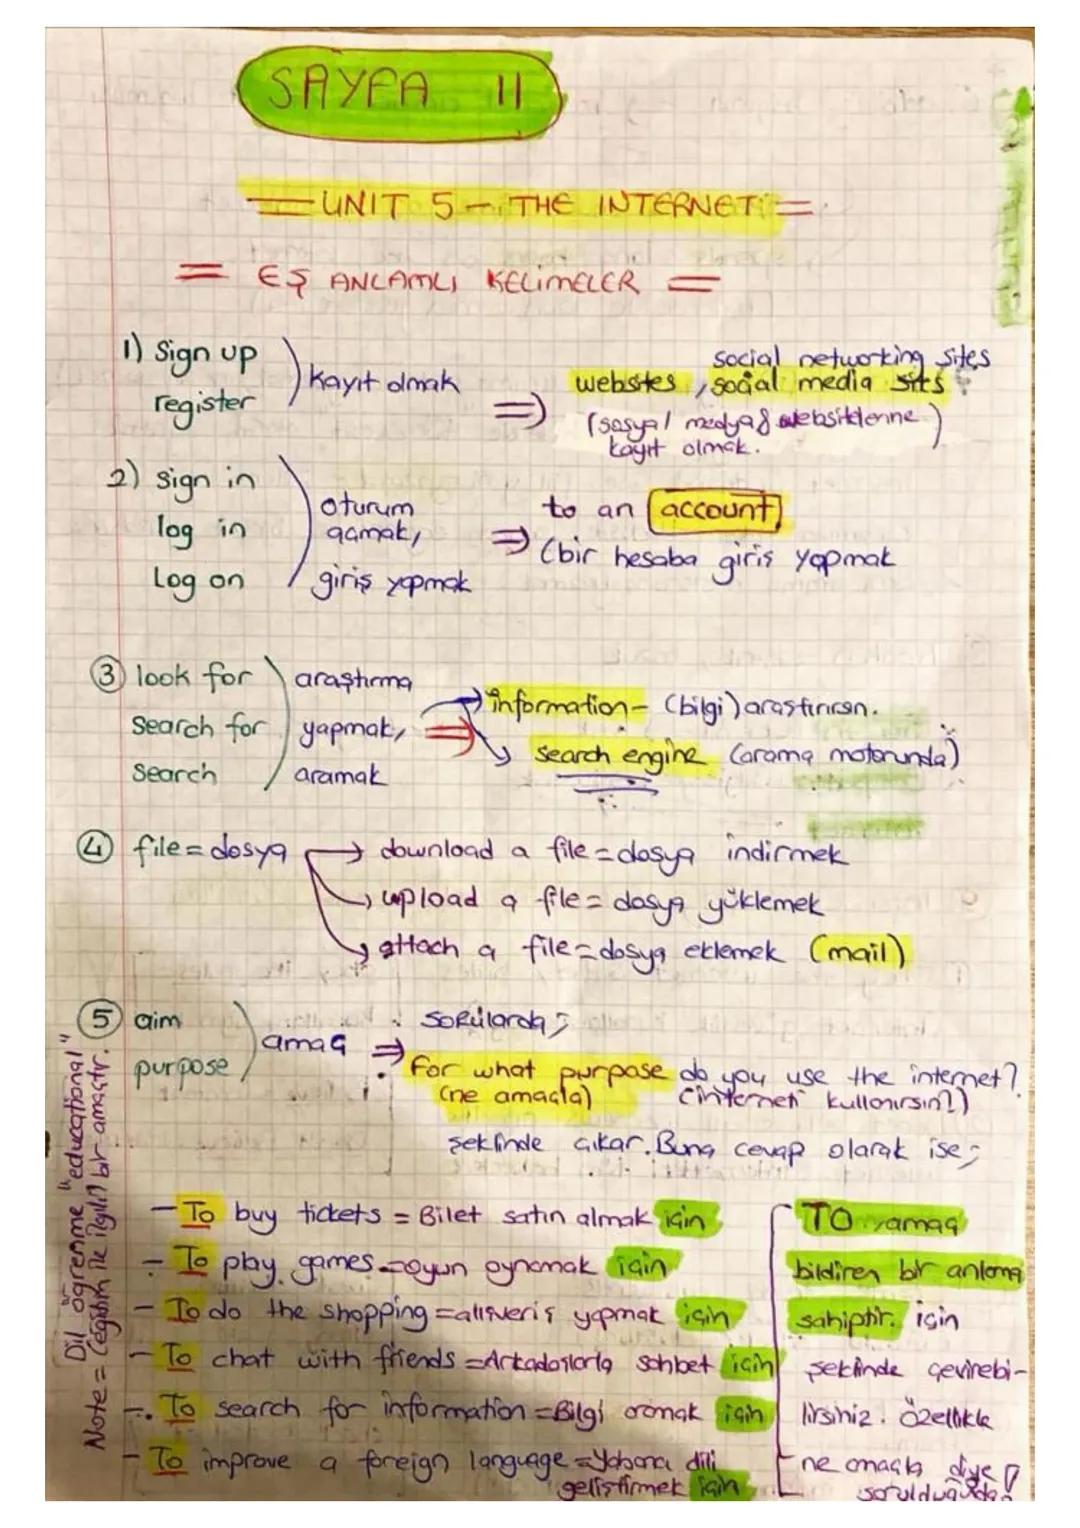 SAYFA 11
= UNIT 5 - THE INTERNET =
= EŞ ANLAMLI KELİMELER =
1) Sign up
register
kayıt olmak
⇒
social networking sites
websites, social media sites
(sosyal medya & websitelerine
kayıt olmak.)
2) sign in
log in
Log on
oturum
açmak,
giriş yapmak
⇒
to an account
(bir hesaba giriş yapmak
3 look for
Search for
Search
araştırma
yapmak,
aramak
⇒
information - (bilgi) araştırırsın.
search engine (arama motorunda)
4 file = dosya → download a file = dosya indirmek
→ upload a file = dosya yüklemek
→ attach a file = dosya eklemek (mail)
5 aim
purpose
amaç ⇒
sorularda;
For what purpose do you use the internet?
(ne amaçla) (interneti kullanırsın?)
şeklinde çıkar. Buna cevap olarak ise;
- To buy tickets = Bilet satın almak için
- To play games = oyun oynamak için
- To do the shopping = alışveriş yapmak için
- To chat with friends = Arkadaşlarla sohbet için
- To search for information = Bilgi aramak için
- To improve a foreign language = Yabancı dili
geliştirmek için
TO amaç
bildiren bir anlama
sahiptir. için
şeklinde çevirebi-
lirsiniz. Özellikle
ne amaçla diye
sorulduğunda
Dil öğrenme "educational"
Note = (eğitim ile ilgili) bir amaçtır.